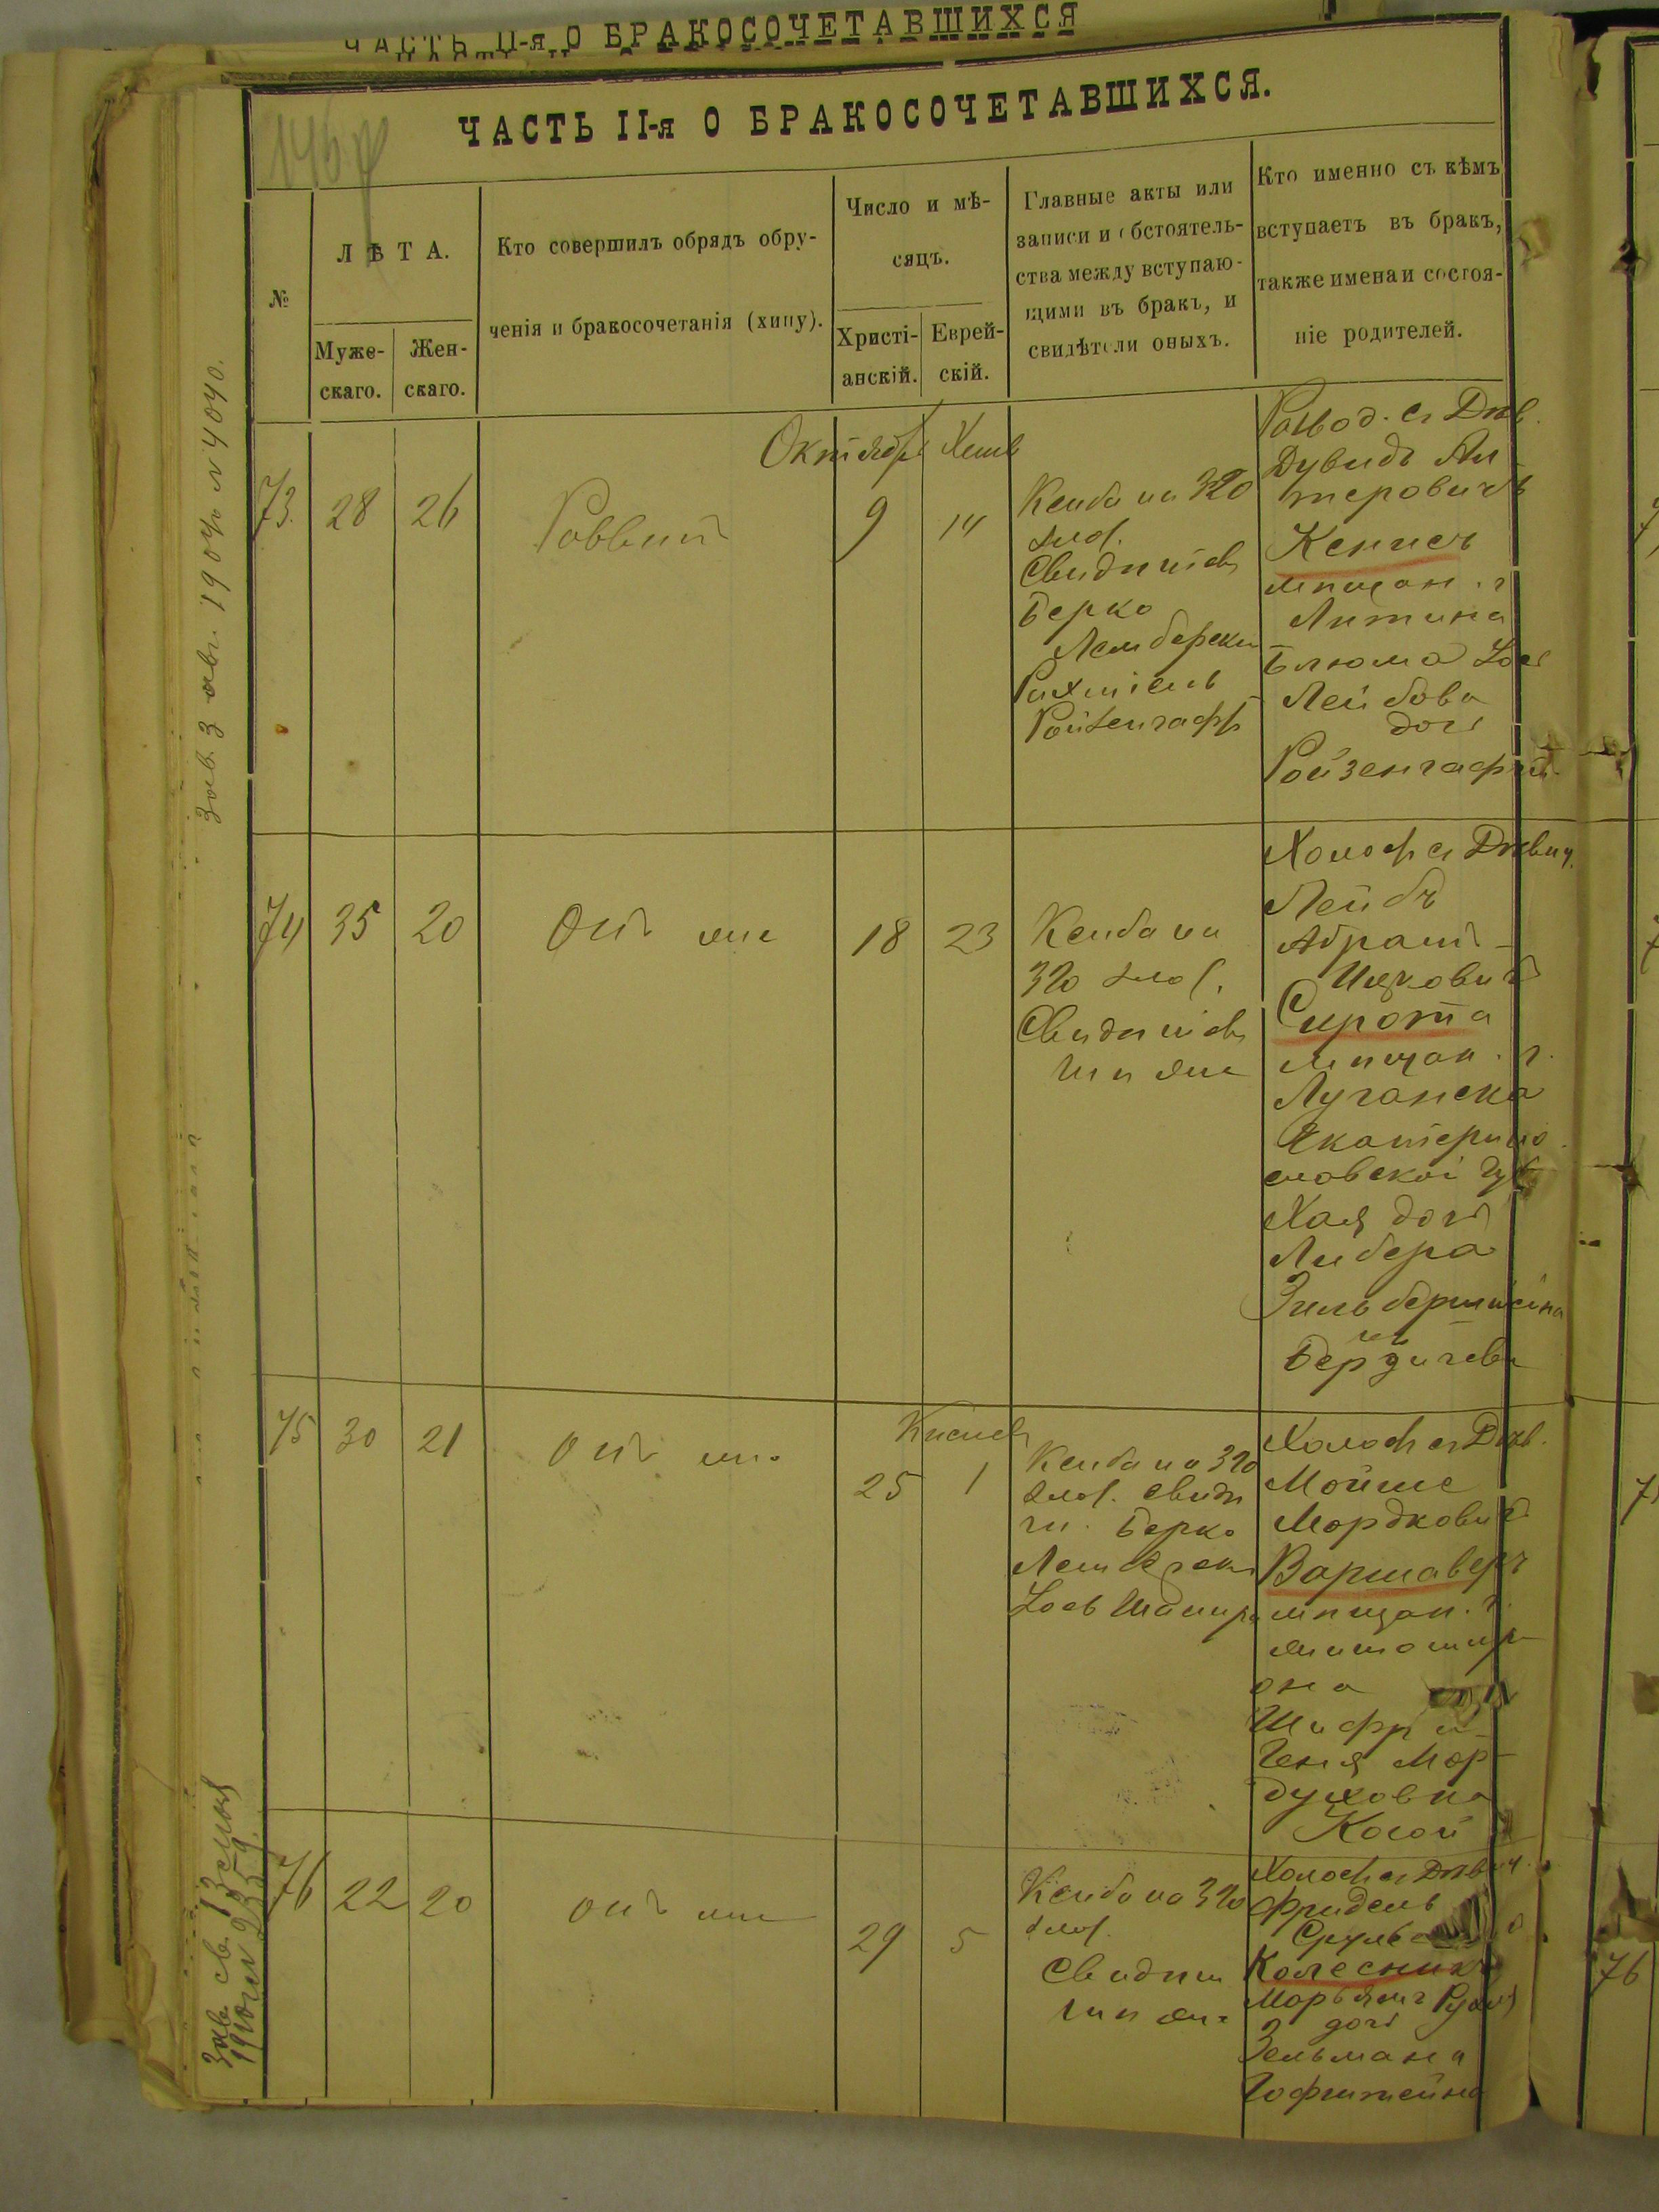 ЧАСТЬ II-я О БРАКОСОЧЕТАВШИХСЯ
ЧАСТЬ II-я О БРАКОСОЧЕТАВШИХСЯ.
№
ЛѢТА.
Муже-
скаго.
Жен-
скаго.
Кто совершилъ обрядъ обру-
ченія и бракосочетанія (хипу).
Число и мѣ-
сяцъ.
Христі-
анскій.
Еврей-
скій.
Главные акты или
записи и обстоятель-
ства между вступаю-
щими въ бракъ, и
свидѣтели оныхъ.
Кто именно съ кѣмъ
вступаетъ въ бракъ,
также имена и состоя-
ніе родителей.
Октября Хешв
73.
28
26
Раввинъ
9
14
Ксиба на 320
злот.
Свидѣтели
Берко
Лемберски
Рахміель
Ройзенгафъ
Развод. съ Дѣв.
Дувидъ Ал
теровичъ
Кенисъ
мѣщан. г
Литина
Блюма
Лейбова
дочь
Ройзенгафъ
74
35
20
Онъ же
18
23
Ксиба на
320 злот.
Свидѣтели
тѣ же
Холост съ Дѣвиц.
Лейбъ
Абрамъ-
Ицковичъ
Сирота
мѣщан. г.
Луганска
Екатерино
славской губ
Хая дочь
Либера
Зильберштейна
изъ
Бердичева
75
30
21
онъ же
Кислев
25
1
Ксиба на 320
злот. Свидѣ
тел. Берко
Лемберски
Холост съ Дѣв.
Мойше
Мордковичъ
Варшаверъ
мѣщан. г.
Житомир
она
Шифра
Геня Мор-
духовна
Когай
76
22
20
онъ же
29
5
Ксиба на 320
злот.
Свидѣтели
тѣ же
Холост съ Дѣвиц.
Фридель
Колесникъ
Марьямъ
дочь
Зельмана
Гофштейна
Зав. 3 авг. 1904г. №4040.